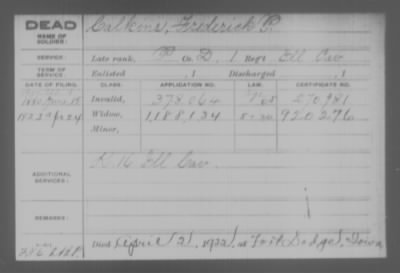 DEAD
NAME OF SOLDIER:
Calkins, Frederick P.
SERVICE:
Late rank, P Co. D, 1 Reg't Ill Cav
TERM OF SERVICE:
Enlisted , 1 Discharged , 1
DATE OF FILING. CLASS. APPLICATION NO. LAW. CERTIFICATE NO.
1880 June 15 Invalid, 378.064 270.981
1922 Apr 24 Widow, 1,188,134 920296
Minor,
ADDITIONAL SERVICES:
K. 16 Ill Cav.
REMARKS:
Died April 2, 1922, at Fort Dodge, Iowa